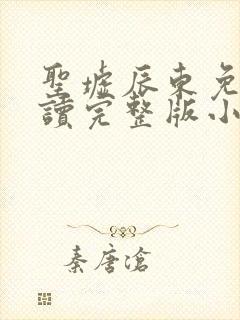 聖墟辰東免
讀完整版小
秦唐滄